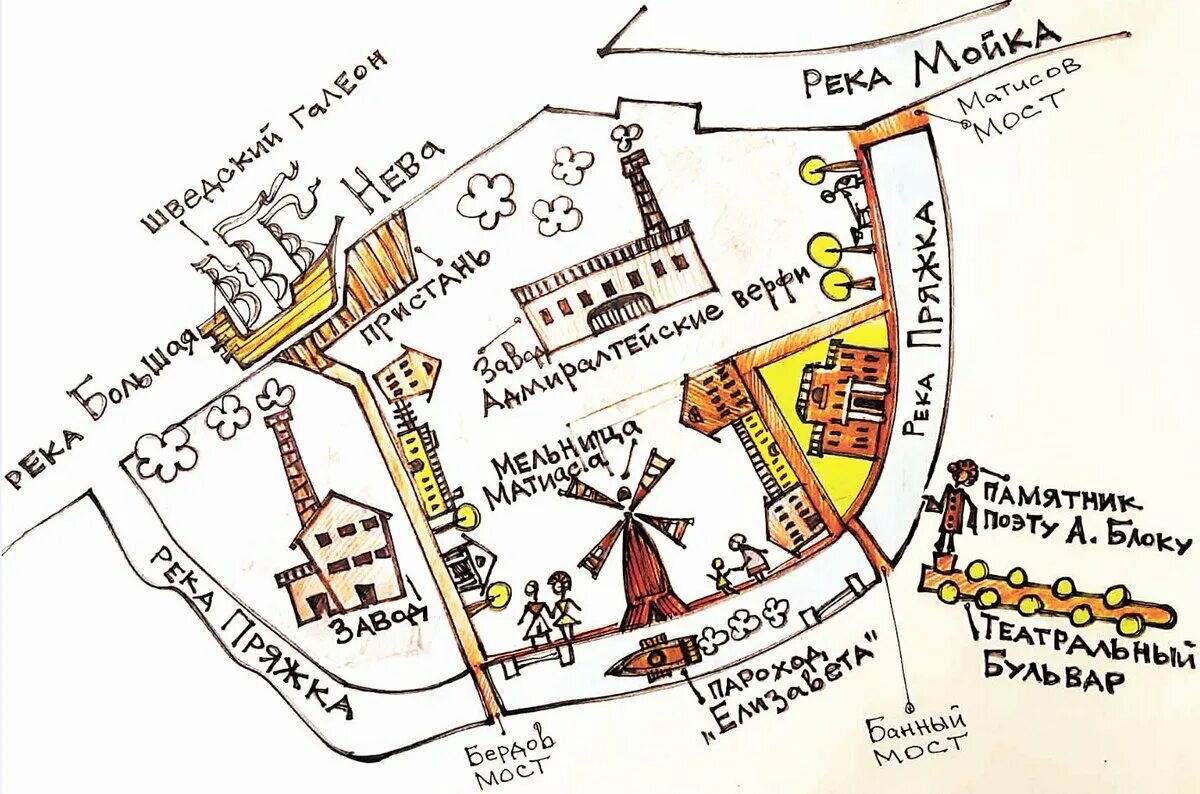 РЕКА МОЙКА
Матисов
мост
ШВЕДСКИЙ ГАЛЕОН
РЕКА БОЛЬШАЯ НЕВА
ПРИСТАНЬ
ЗАВОД
АДМИРАЛТЕЙСКИЕ ВЕРФИ
РЕКА ПРЯЖКА
РЕКА ПРЯЖКА
МЕЛЬНИЦА
МАТИАСА
ПАМЯТНИК
ПОЭТУ А. БЛОКУ
ТЕАТРАЛЬНЫЙ
БУЛЬВАР
ЗАВОД
РЕКА ПРЯЖКА
ПАРОХОД
"ЕЛИЗАВЕТА"
Бердов
мост
Банный
мост